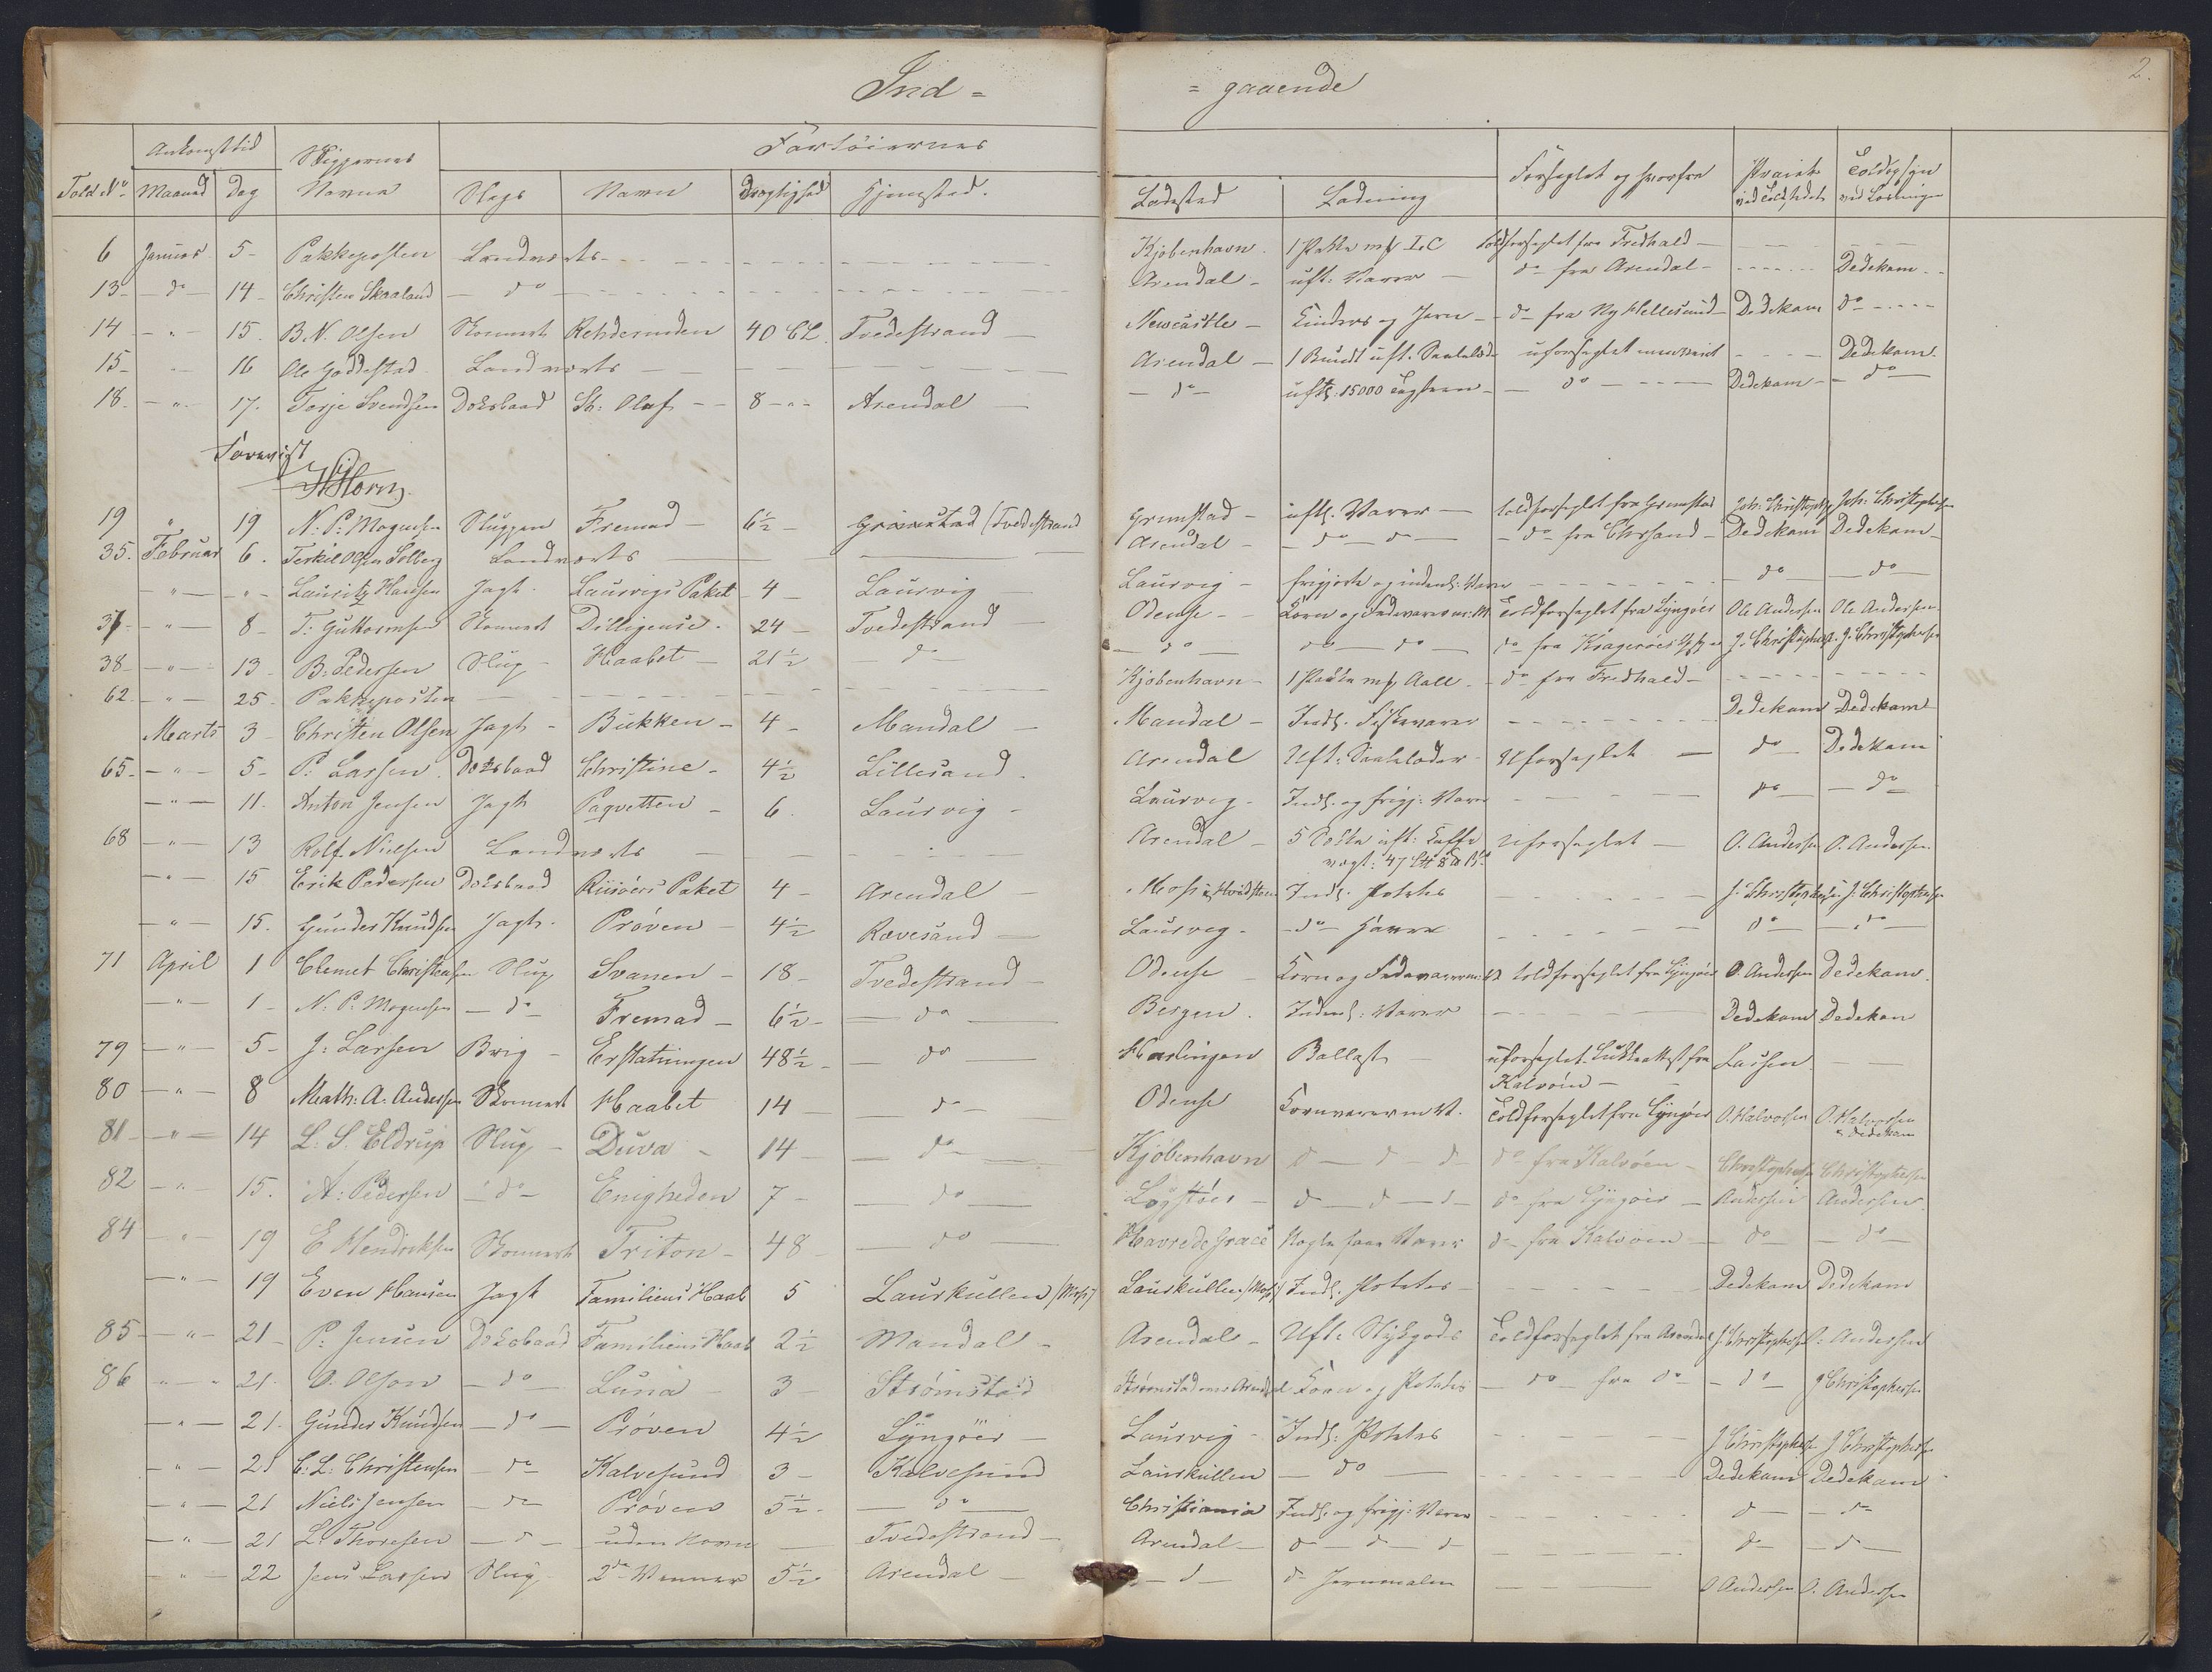 Ind = = gaaende 2.
Ankomsttid Skippernes Fartöiernes
Told No. Maaned Dag Navne Slags Navn Drægtighed Hjemsted. Ladested Ladning Forseglet og hvorfra Told opsyn ved Losningen
6 Januar 5 - Pakkeposten Landværts Kjöbenhavn. 1 Pakke mrk I.C Toldforseglet fra Fredhald
13 - do - 14 - Christen Skaaland - do - Arendal - uft: Varer - do fra Arendal - Dedekam
14 - " - 15. B. N. Olsen Skonnert 40 CL. Tvedestrand Newcastle - Cinders og Jern - do fra Ny Hellesund - Dedekam do
15 - " - 16 Ole Goddestad Landværts Arendal - 1 Bundt uft. uforseglet Dedekam.
18. - " - 17. Terje Svendsen Doksbaad St: Olaf 8 - " - Arendal - do - uft. 15000 Tagsteen - do - Dedekam - do
Forevist
19 " 19 N: P: Mogensen Sluppen Fremad - 6½ - Grimstad / Tvedestrand Grimstad - uft. Varer - Toldforseglet fra Grimstad Joh: Christophersen Joh: Christophersen
35. Februar 6. Terkil Olsen Solberg Landværts Arendal - do - do - do fra Chrsand - Dedekam Dedekam
- " - " - Lauritz Hansen Jagt. Laurvigs Paket 4 - Laurvig Laurvig - frigjorte og indenl: Varer - do - do
37 - " - 8 - T: Guttormsen Skonnert Dilligence. 24 - Tvedestrand Odense - Korn og Fedevarer Toldforseglet fra Lyngöer Ole Andersen Ole Andersen
38 - " - 13 - B: Pedersen Slup Haabet - 21½ - do - do - do - do - do fra Kragerö J. Christophersen J. Christophersen
62 - " - 25 - Pakkeposten Kjöbenhavn - 1 Pakke mrk Aall - do fra Fredhald
Marts 3 - Christen Olsen Jagt - Bukken - 4 - Mandal - Mandal - Indl. Fiskevarer Dedekam Dedekam
65 - " - 5 - P: Larsen. Doksbaad Christine - 4½ Lillesand. Arendal Uft: Uforseglet - do - Dedekam
- " - 11. Anton Jensen Jagt Paqvetten - 6. Laurvig - Laurvig - Indl. og frigj: Varer do - do
68 - " - 13 Rolf Nielsen Landværts Arendal - 5 uft: Kaffe Uforseglet - O. Andersen O. Andersen
- " - 15 Erik Pedersen Doksbaad Riisöers Paket 4 - Arendal Indl. Potetes J. Christophersen J. Christophersen
- " - 15. Gunder Knudsen Jagt. Pröven 4½ Rævesand Laurvig - do - do - do
71 April 1 Clemet Christensen Slup Svanen - 18 - Tvedestrand - Odense Korn og Fedevarer toldforseglet fra Lyngöer O. Andersen Dedekam.
- " - 1 - N. P. Mogensen - do - Fremad - 6½ - do Bergen. Indenl: Varer Dedekam Dedekam
79 - " - 5 - J: Larsen Brig - Erstatningen 48½ - do Harlingen Ballast uforseglet fra Kalvöen - Larsen
80 - " - 8 Math: A. Andersen Skonnert Haabet 14 - do - Odense Kornvarer Toldforseglet fra Lyngöer O. Halvorsen O. Halvorsen
& Dedekam
81 - " - 14 L. S. Eldrup Slup - Duva - 14 - do - Kjöbenhavn d - d - d - do fra Kalvöen - Christophersen Christophersen
82 - " - 15. A: Pedersen - do - Enigheden 7 - do - d - d - d - do fra Lyngöer - Andersen Andersen
84 - " - 19 E Hendriksen Skonnert Triton - 48 - do - Havre de Grace Nogle faae Varer do fra Kalvöen - do - do
- " - 19 Even Hansen Jagt Familiens Haab 5 Laurkullen / Moss / Laurkullen / Moss / Indl. Potetes - Dedekam Dedekam
85 - " - 21 - P: Jensen Doksbaad Familiens Haab 2½ Mandal - Arendal - Uft: Stykgods Toldforseglet fra Arendal J Christophersen O: Andersen
86 " - " 21. O. Olson - do - Luna - 3 - Strömstad Strömstad over Arendal Korn og Potetes - do - fra do - do - J Christophersen
- " - 21. Gunder Knudsen - do - Pröven 4½ Lyngöer - Laurvig - Indl: Potetes J Christophersen J Christophersen
- " - 21 C. L. Christensen - do Kalvesund 3 - Kalvesund Laurkullen - do Dedekam Dedekam
- " - 21 Niels Jensen - do Pröven 5½ - do Christiania Indl. og frigj: Varer d - do
- " - 21 L. Thoresen - d - uden Navn - Tvedestrand - Arendal - d - d - d do - d -
- " - 22 Jens Larsen Slup 2de Venner 5½ Arendal - d - do O Andersen O. Andersen